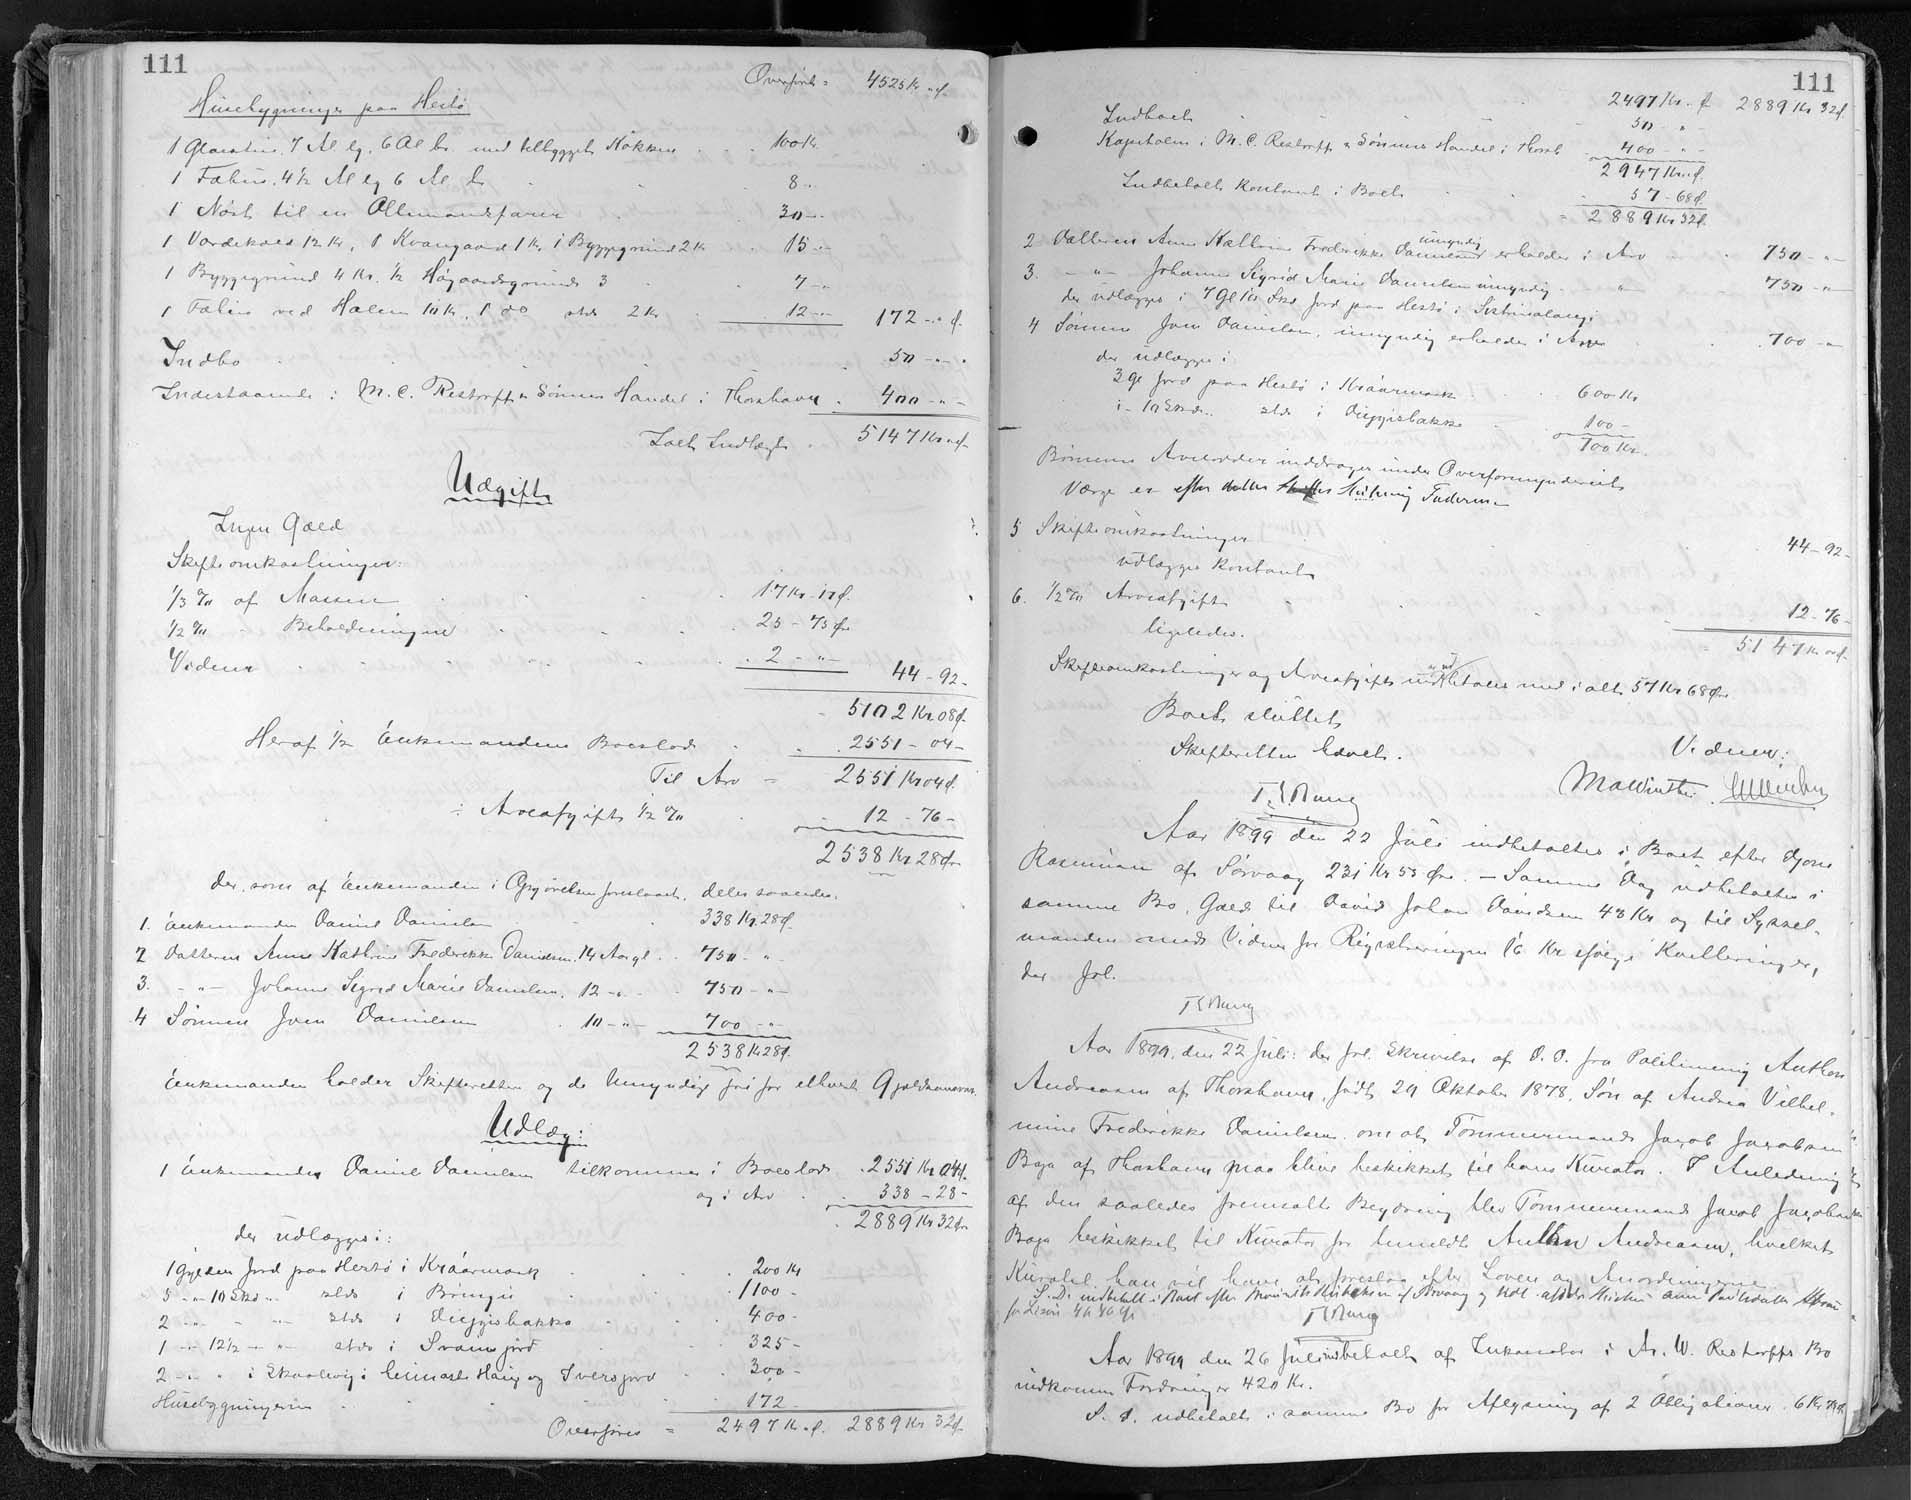 111
Overført = 4525 Kr. " Ø.
Husebygninger paa Hestø
1 Glasstue 7 Al lg. 6 Al br. med tilbygget Køkken 100 Kr.
1 Fæhus. 4½ Al lg 6 Al b. 8 "
1 Nøst til en Ottemandsfarer 30 - "
1 Vardekold 12 Kr, 1 Kvangaard 1 Kr, 1 Byggegrund 2 Kr 15 - "
1 Byggegrund 4 Kr. ½ Høgaardsgrund 3 7 - "
1 Fæhus ved Halen 10 Kr. 1 do stds 2 Kr 12 - " 172 - " Ø.
Indbo 50 - " -
Indestaaende i M. C. Restorff & Sønners Handel i Thorshavn 400 - " -
Ialt Indtægt 5147 Kr. " Ø.
Udgift
Ingen Gæld
Skifteomkostninger:
⅓ % af Massen 17 Kr - 17 Ø.
½ % - Beholdningen 25 - 75 Ø.
Vidner 2 - " - 44 - 92 -
5102 Kr. 08 Ø.
Heraf ½ Enkemandens Boeslod 2551 - 04 -
Til Arv = 2551 Kr 04 Ø.
÷ Arveafgift ½ % 12 - 76 -
2538 Kr 28 Ø.
der, som af Enkemanden i Opgjørelsen foreslaaet, deles saaledes:
1. Enkemanden Daniel Danielsen 338 Kr. 28 Ø.
2 Datteren Anne Kathrine Frederikke Danielsen. 14 Aar gl. 750 - " -
3. - " - Johanne Sigrid Marie Danielsen, 12 - " - 750 - " -
4 Sønnen Joen Danielsen 10 - " - 700 - " -
2538 Kr 28 Ø.
Enkemanden holder Skifteretten og de Umyndige fri for ethvert Gjældsansvar.
Udlæg:
1 Enkemanden Daniel Danielsen tilkommer i Boeslod 2551 Kr 04 Ø.
og i Arv 338 - 28 -
2889 Kr 32 Ø.
der udlægges i:
1 Gylden Jord paa Hestø i Kráarmark 200 Kr
5 - " 10 Skd " stds i Bøngu 1100 -
2 - " - " stds i Dieggisbakka 400 -
1 - " 12½ - " stds i Svansjord 325 -
2 - " - i Skaalevig i heimasta Haug og Iversjord 300 -
Husebygningerne 172
Overføres = 2497 Kr. " Ø. 2889 Kr 32 Ø.
111
2497 Kr. " Ø 2889 Kr 32 Ø.
Indboet 50 - " -
Kapitalen i M. C. Restorff & Sønners Handel i Thorsh 400 - " -
2947 Kr. " Ø.
Indbetalt kontant i Boet 57 - 68 Ø.
= 2889 Kr 32 Ø.
umyndig
2 Datteren Anne Kathrine Frederikke Danielsen erholder i Arv 750 - " -
3. - " - Johanne Sigrid Marie Danielsen umyndig - " - 750 - " -
der udlægges i 7 Gl 10 Skd Jord paa Hestø i
4 Sønnen Joen Danielsen, umyndig erholder i Arv 700 - "
der udlægges i
3 Gl Jord paa Hestø i Kráarmark 600 Kr
i - 10 Skd. stds i Dieggisbakka 100 -
700 Kr.
Børnenes Arvelodder inddrages under Overformynderiet
Værge er efter dettes
5 Skifteomkostninger 44 - 92 -
udlægges kontant
6. ½ % Arveafgift 12 - 76 -
ligeledes.
= 5147 Kr " Ø.
Skifteomkostninger og Arveafgift udbetales med i alt 57 Kr 68 Øre
Boet sluttet
Skifteretten hævet. Vidner:
MaWinther.
Aar 1899 den 22 Juli indbetaltes i Boet efter Djoni
Rasmussen af Sørvaag 231 Kr 55 Øre. - Samme Dag udbetaltes i
samme Bo, Gæld til David Johan Davidsen 48 Kr og til Syssel-
manden med Vidner for Registreringen 16 Kr ifølge Kvitteringer,
der fol.
Aar 1899, den 22 Juli: der fol. Skrivelse af D. D. fra Pallemning Anthon
Andreasen af Thorshavn, født 29 Oktober 1878, Søn af Andrea Vilhel-
mine Frederikke Danielsen om at Tømmermand Jacob Jacobsen
Bøga af Thorshavn maa blive beskikket til hans Kurator. I Anledning
af den saaledes fremsatte Begjæring blev Tømmermand Jacob Jacobsen
Bøga beskikket til Kurator for bemeldte Anthon Andreasen, hvilket
Kuratel han vil have at forestaa efter Loven og Anordningerne
S. D. indbetalt i Boet efter
Aar 1899 den 26 Juli indbetalt af Inkassator i A. W. Restorffs Bo
indkomne Fordringer 420 Kr.
S. D. udbetalt i samme Bo for Aflysning af 2 Obligationer. 6 Kr